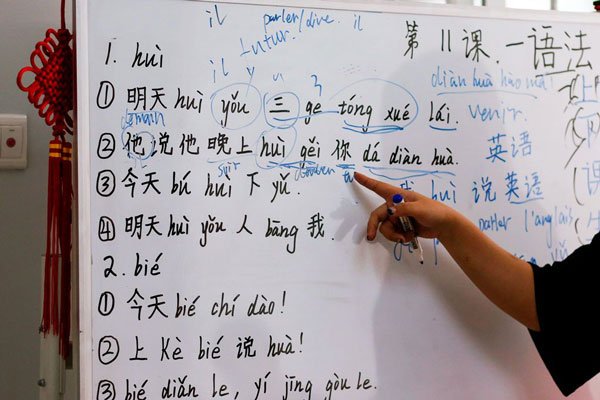 il parler/dire. il
futur.
第 11 课. 一 语法
il y
diàn huà hào mǎ
1. huì
① 明天 huì yǒu 三 ge tóng xué lái. venir.
demain
② 他 说 他 晚上 huì gěi 你 dá diàn huà. 英语
soir
③ 今天 bú huì 下 yǔ. huì 说 英语
parler l'anglais
④ 明天 huì yǒu 人 bāng 我.
2. bié
① 今天 bié chí dào!
② 上 Kè bié 说 huà!
③ bié diǎn le, yí jīng gòu le.